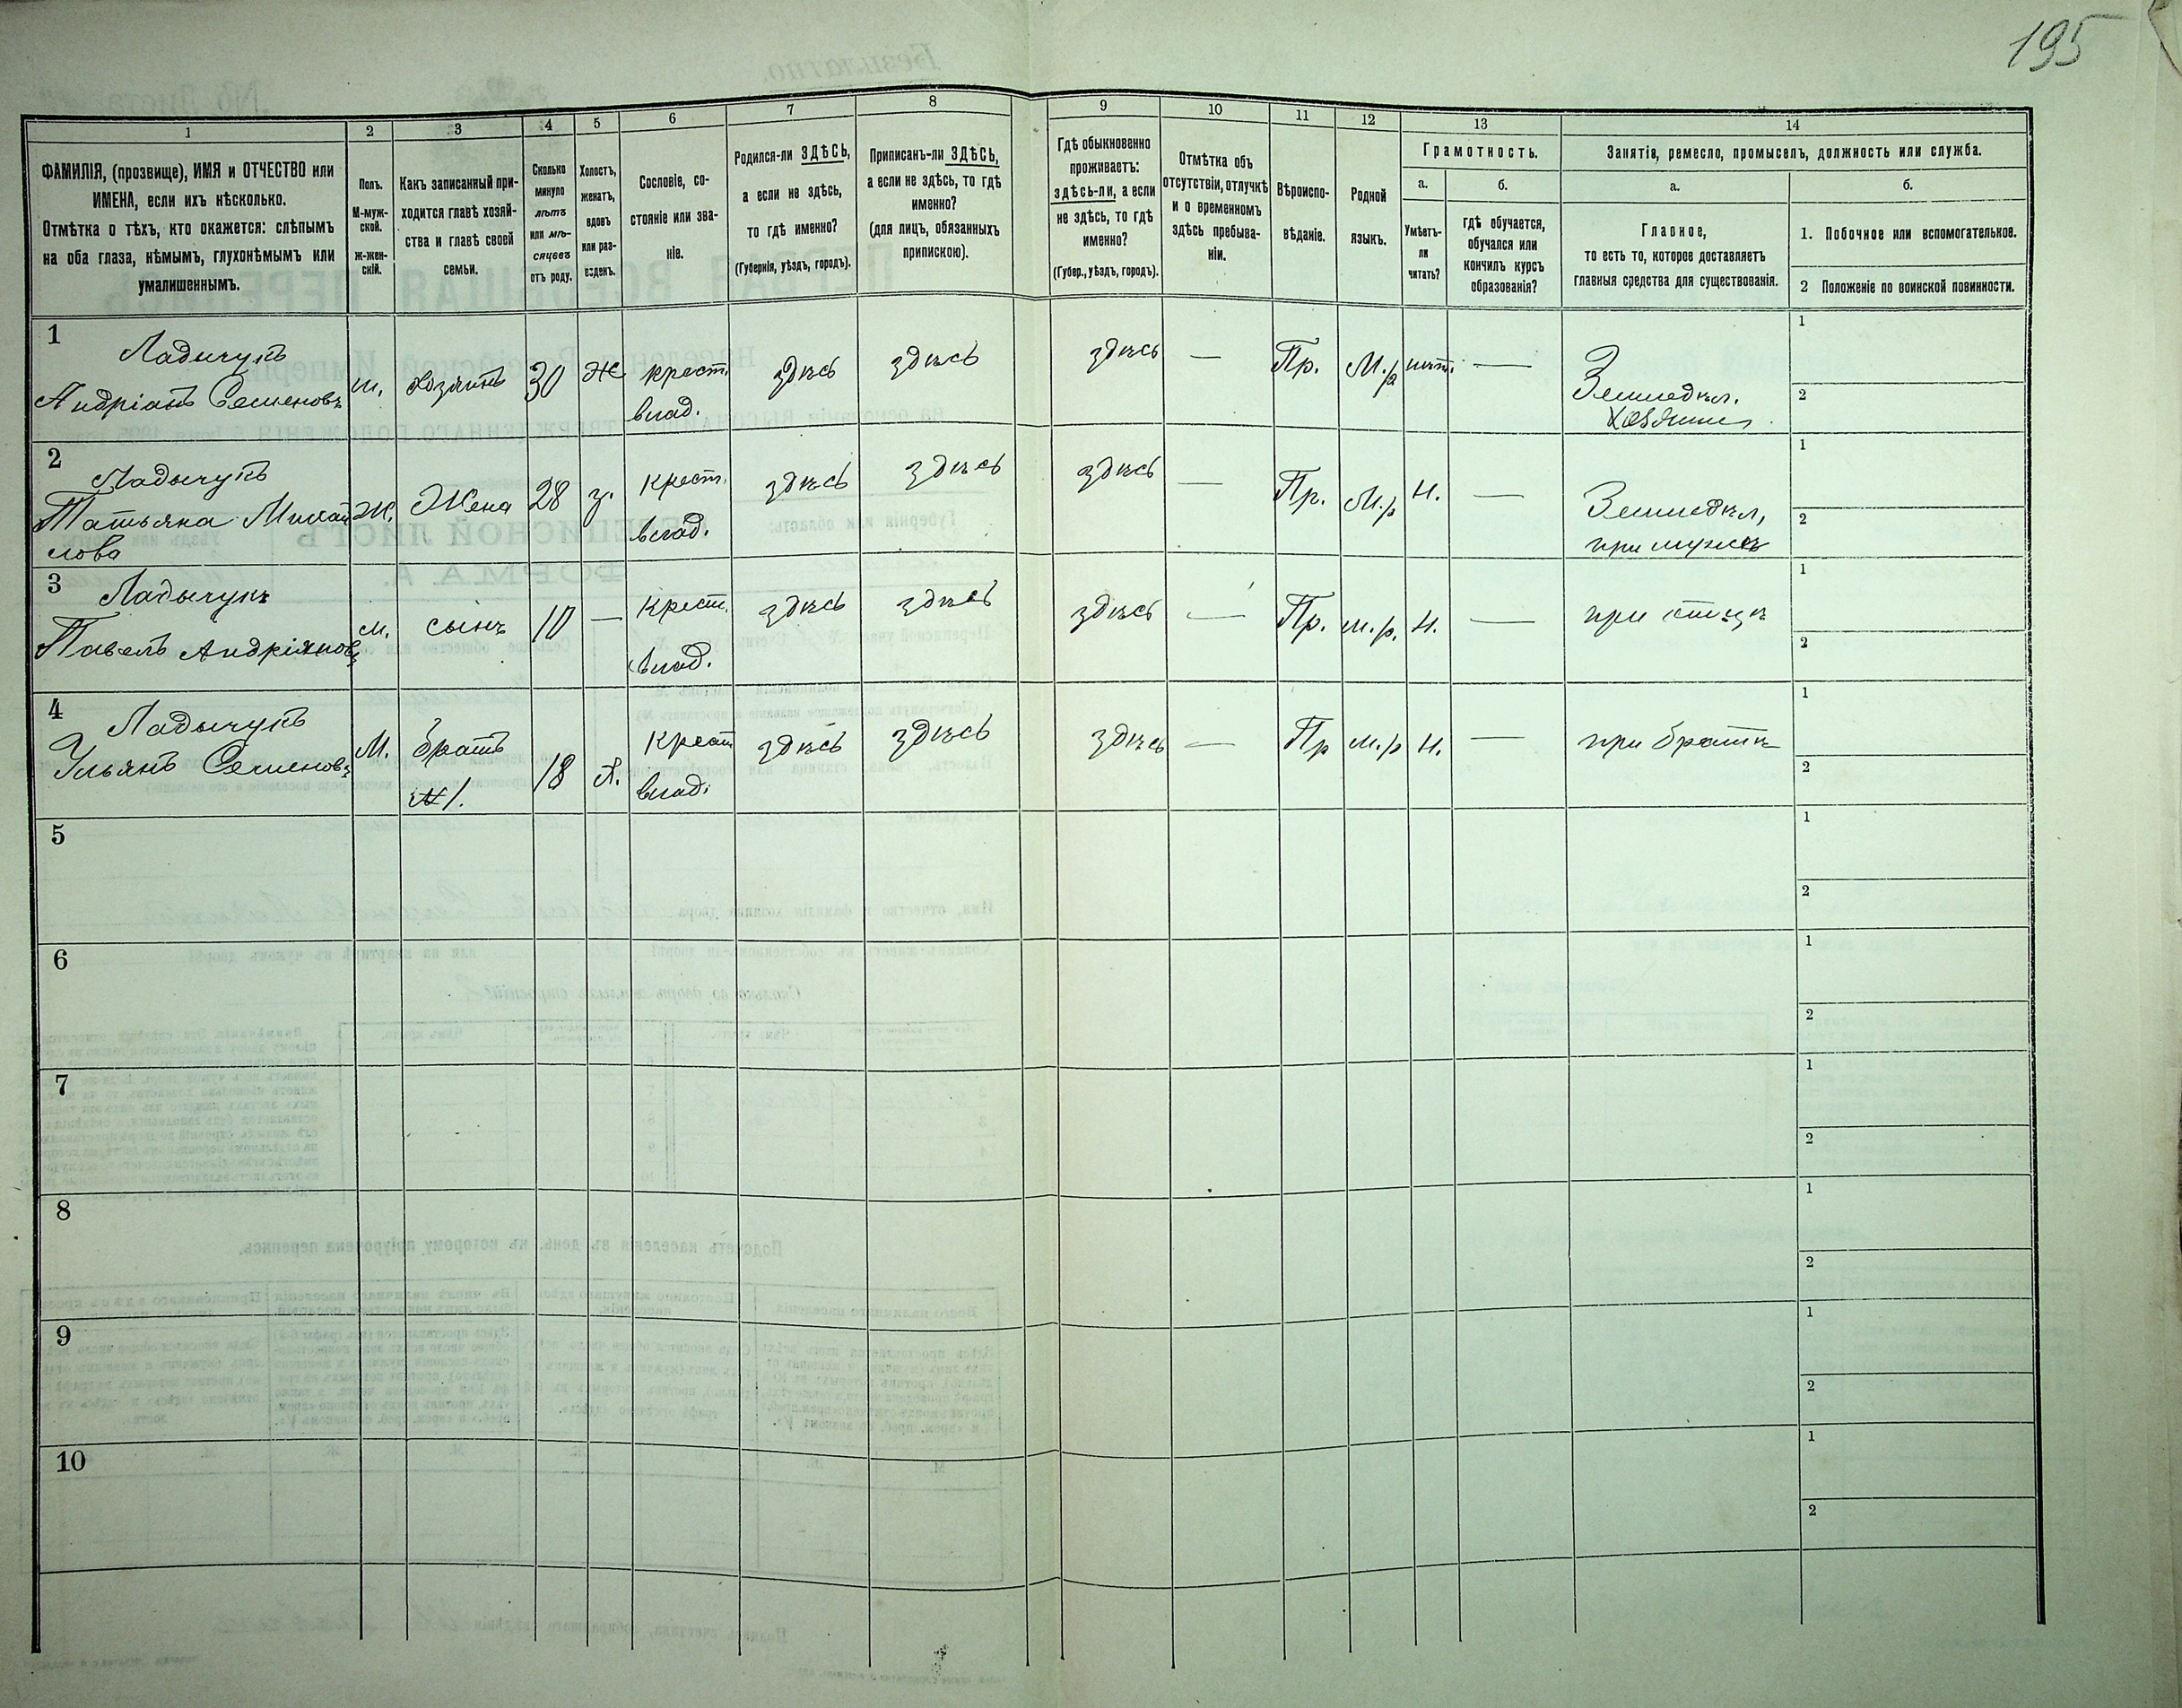 195
1
2
3
4
5
6
7
8
9
10
11
12
13
14
ФАМИЛІЯ, (прозвище), ИМЯ и ОТЧЕСТВО или
ИМЕНА, если ихъ нѣсколько.
Отмѣтка о тѣхъ, кто окажется: слѣпымъ
на оба глаза, нѣмымъ, глухонѣмымъ или
умалишеннымъ.
Полъ.
М-муж-
ской.
ж-жен-
скій.
Какъ записанный при-
ходится главѣ хозяй-
ства и главѣ своей
семьи.
Сколько
минуло
лѣтъ
или мѣ-
сяцевъ
отъ роду.
Холостъ,
женатъ,
вдовъ
или раз-
веденъ.
Сословіе, со-
стояніе или зва-
ніе.
Родился-ли ЗДѢСЬ,
а если не здѣсь,
то гдѣ именно?
(Губернія, уѣздъ, городъ).
Приписанъ-ли ЗДѢСЬ,
а если не здѣсь, то гдѣ
именно?
(для лицъ, обязанныхъ
припискою).
Гдѣ обыкновенно
проживаетъ:
здѣсь-ли, а если
не здѣсь, то гдѣ
именно?
(Губер., уѣздъ, городъ).
Отмѣтка объ
отсутствіи, отлучкѣ
и о временномъ
здѣсь пребыва-
ніи.
Вѣроиспо-
вѣданіе.
Родной
языкъ.
Грамотность.
а.
Умѣетъ-
ли
читать?
б.
гдѣ обучается,
обучался или
кончилъ курсъ
образованія?
Занятіе, ремесло, промыселъ, должность или служба.
а.
Главное,
то есть то, которое доставляетъ
главныя средства для существованія.
б.
1. Побочное или вспомогательное.
2 Положеніе по воинской повинности.
1
Ладычукъ
Андріанъ Семеновъ
м. хозяинъ 30 Ж крест. здѣсь здѣсь здѣсь — Пр. М.р нѣт. —
влад.
Земледѣл.
хозяинъ
1
2
2
Ладычукъ
Татьяна Михай
лова
Ж. Жена 28 з. крест. здѣсь здѣсь здѣсь — Пр. М.р Н. —
влад.
Земледѣл,
при мужѣ
1
2
3
Ладычукъ
Павелъ Андріяновъ
м. сынъ 10 — крест. здѣсь здѣсь здѣсь — Пр. м.р. Н. — при отцѣ
влад.
1
2
4
Ладычукъ
Ульянъ Семеновъ
М. братъ 18 х. крест здѣсь здѣсь здѣсь — Пр м.р Н. — при братѣ
№1. влад.
1
2
5
1
2
6
1
2
7
1
2
8
1
2
9
1
2
10
1
2